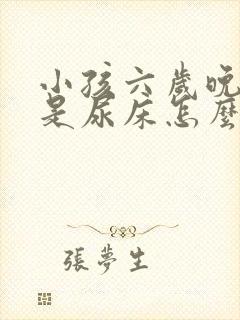 小孩六歲晚
是尿床怎麼
張夢生